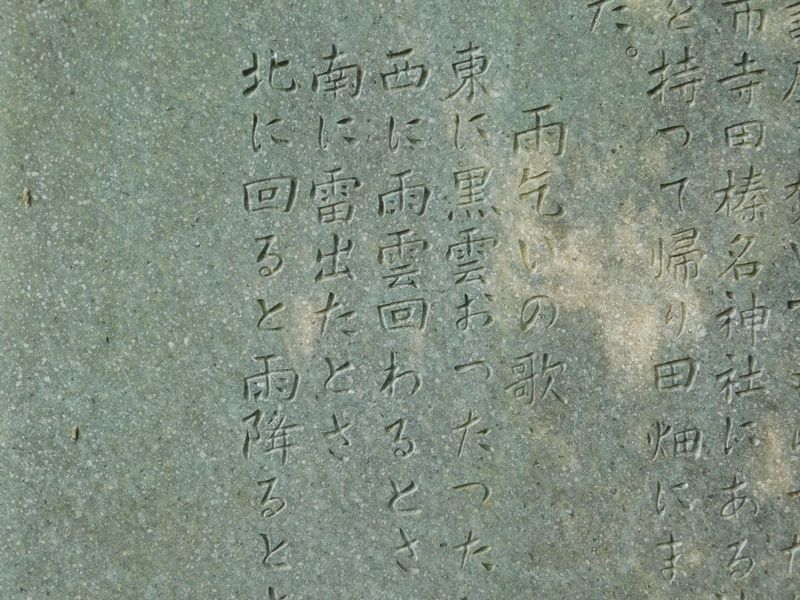 市寺田榛名神社にある
と持って帰り田畑にま
た。
雨乞いの歌
東に黒雲おったつた
西に雨雲回わるとさ
南に雷出たとさ
北に回ると雨降ると